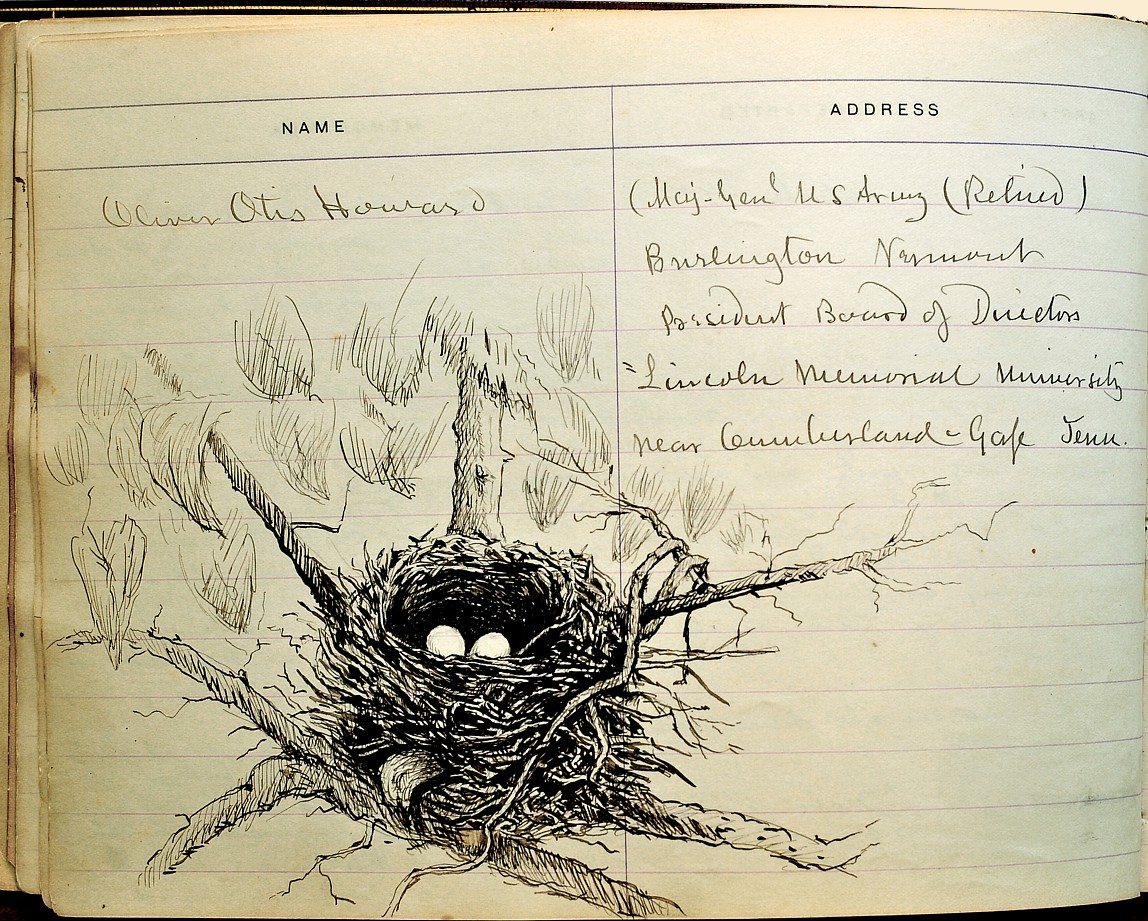 NAME
ADDRESS
Oliver Otis Howard
(Maj-Genl U S Army (Retired)
Burlington Vermont
President Board of Directors
"Lincoln Memorial University
near Cumberland-Gap Tenn.